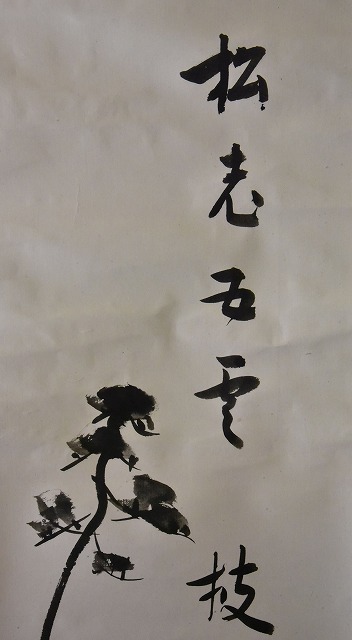 松老五雲
技